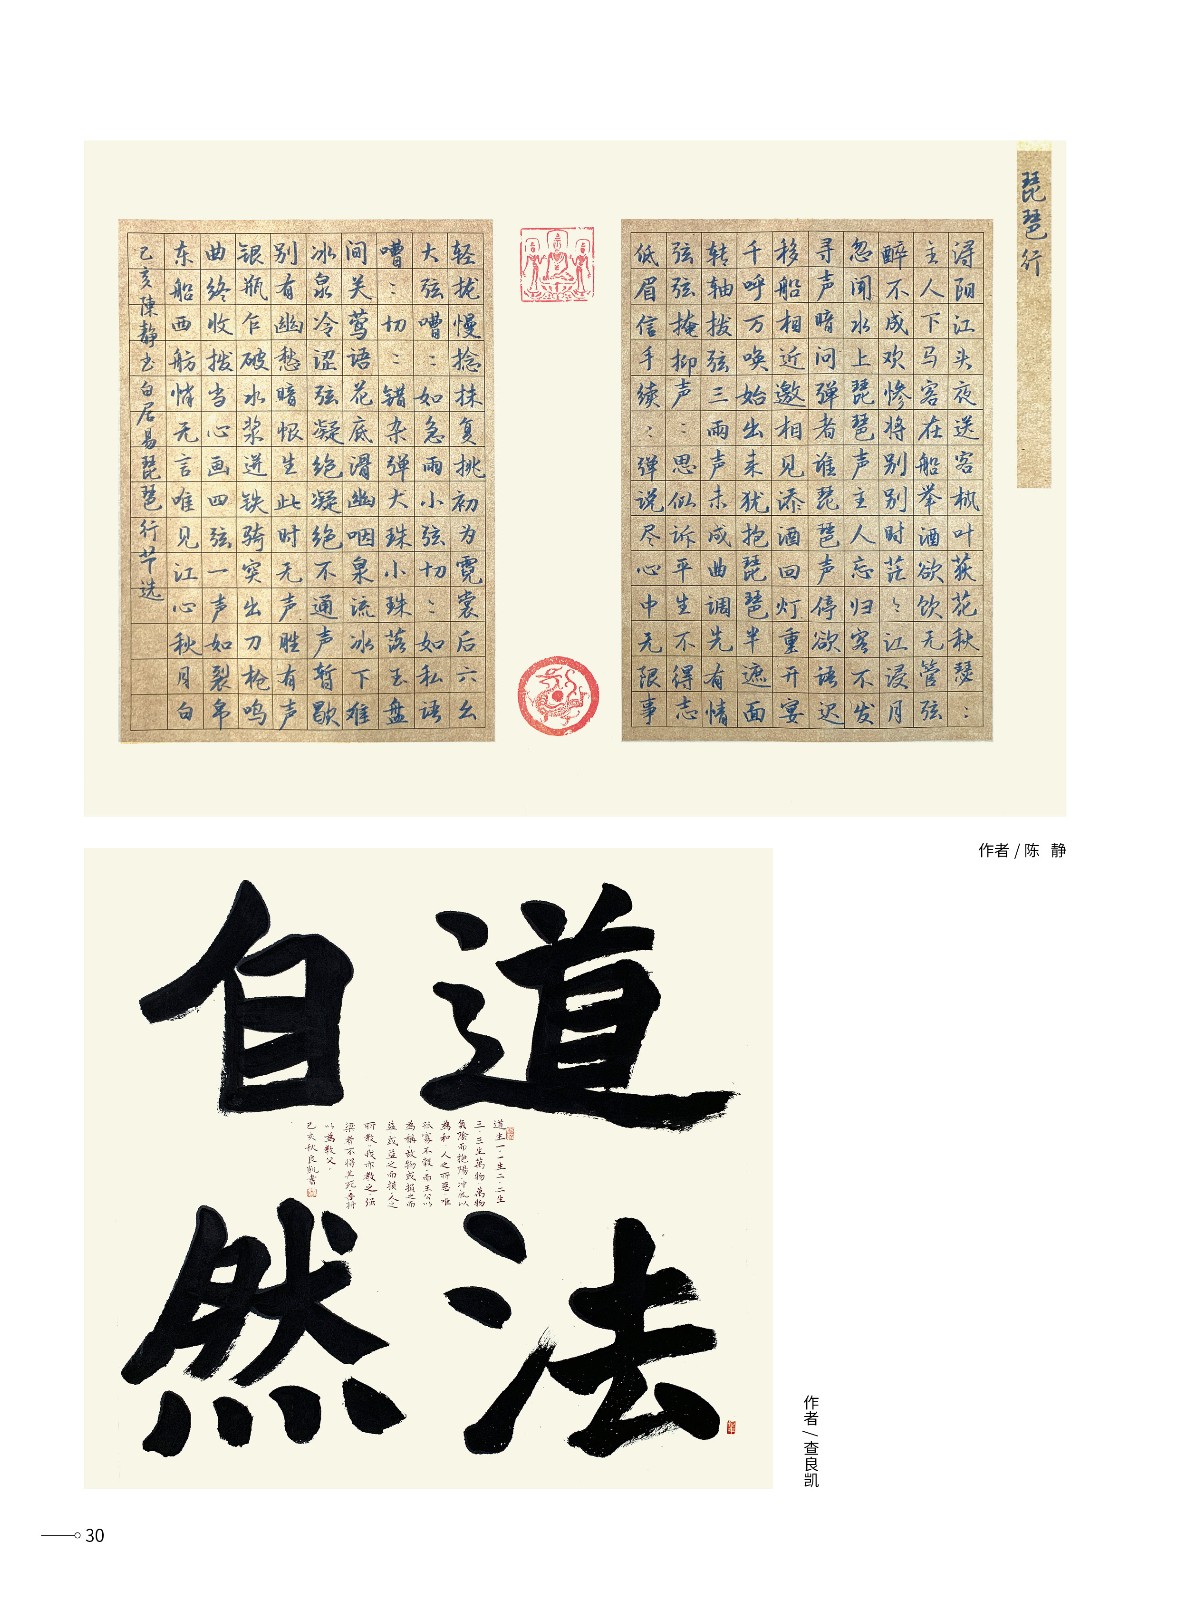 琵琶行
浔阳江头夜送客枫叶荻花秋瑟:
主人下马客在船举酒欲饮无管弦
醉不成欢惨将别别时茫:江浸月
忽闻水上琵琶声主人忘归客不发
寻声暗问弹者谁琵琶声停欲语迟
移船相近邀相见添酒回灯重开宴
千呼万唤始出来犹抱琵琶半遮面
转轴拨弦三两声未成曲调先有情
弦弦掩抑声:思似诉平生不得志
低眉信手续:弹说尽心中无限事
轻拢慢捻抹复挑初为霓裳后六幺
大弦嘈:如急雨小弦切:如私语
嘈:切:错杂弹大珠小珠落玉盘
间关莺语花底滑幽咽泉流冰下难
冰泉冷涩弦凝绝凝绝不通声暂歇
别有幽愁暗恨生此时无声胜有声
银瓶乍破水浆迸铁骑突出刀枪鸣
曲终收拨当心画四弦一声如裂帛
东船西舫悄无言唯见江心秋月白
己亥陳静书白居易琵琶行节选
作者/陈 静
道法
自然
道生一·一生二·二生
三·三生萬物·萬物
負陰而抱陽·冲氣以
為和·人之所惡·唯
孤寡不穀·而王公以
為稱·故物或損之而
益或益之而損·人之
所教·我亦教之·强
梁者不得其死·吾将
以為教父·
己亥秋良凯書
作者/查良凯
30